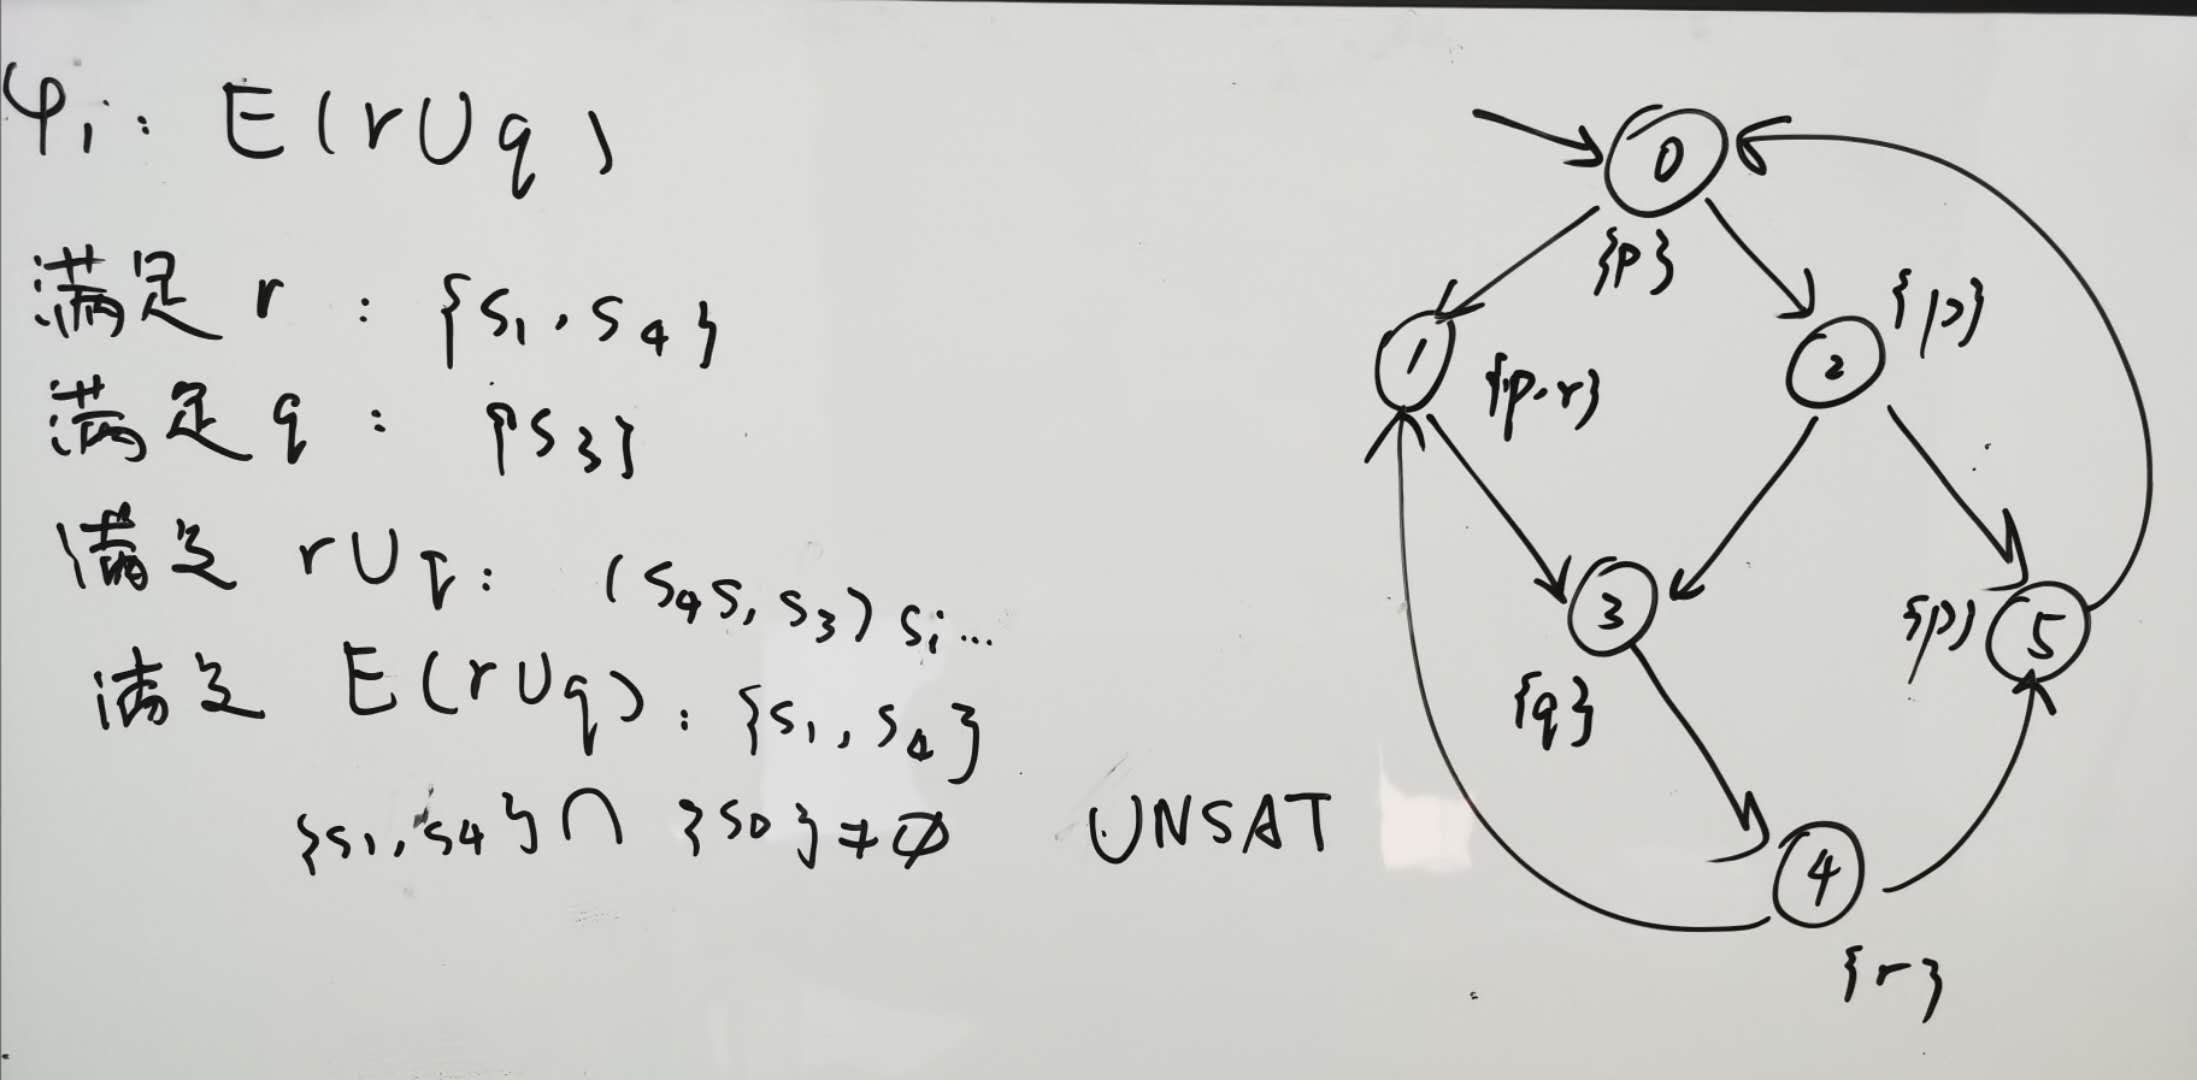 φ₁: E(r∪q)
满足 r : {s₁, s₄}
满足 q : {s₃}
满足 r∪q: (s₄s₁s₃)sᵢ...
满足 E(r∪q): {s₁, s₄}
{s₁, s₄}∩{s₀}≠∅ UNSAT
0
{p}
1
{p.r}
2
{p}
3
{q}
{p}
5
4
{r}